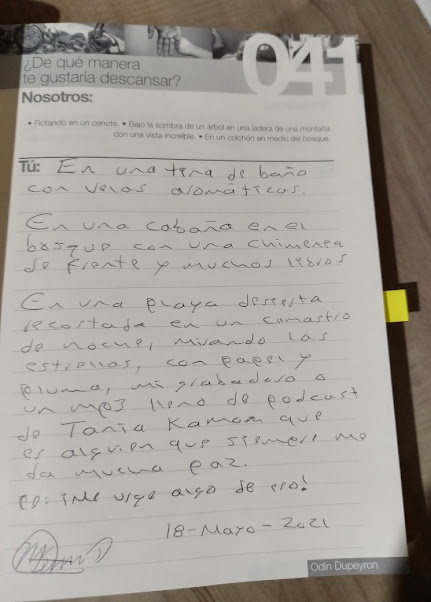 041
¿De qué manera
te gustaría descansar?
Nosotros:
• Flotando en un cenote. • Bajo la sombra de un árbol en una ladera de una montaña
con una vista increíble. • En un colchón en medio del bosque.
Tú: En una tina de baño
con velas aromáticas.
En una cabaña en el
bosque con una chimenea
de frente y muchos libros
En una playa desierta
recostada en un camastro
de noche, mirando las
estrellas, con papel y
pluma, mi grabadora o
un mp3 lleno de podcast
de Tania Karam que
es alguien que siempre me
da mucha paz.
PD: ¡Me urge algo de eso!
18-Mayo-2021
Odin Dupeyron